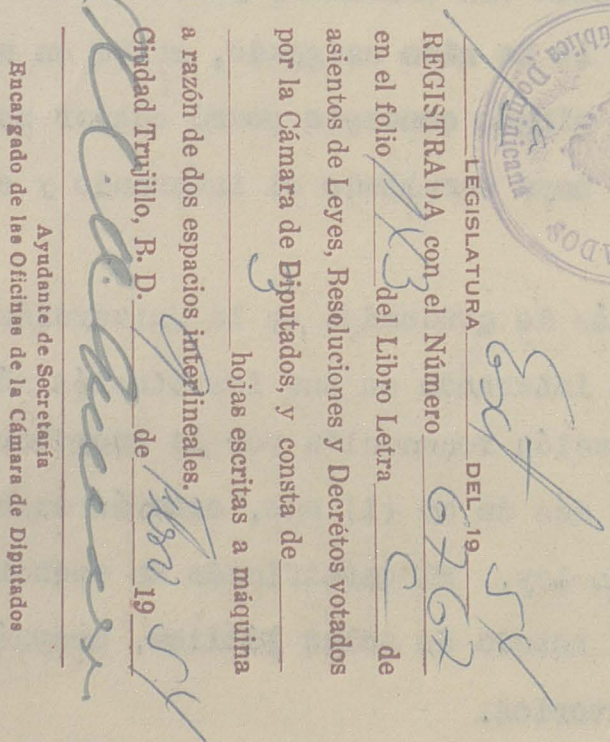 pública Dominicana
ADOS
LEGISLATURA Ext DEL 19 54
REGISTRADA con el Número 6767
en el folio del Libro Letra C de
asientos de Leyes, Resoluciones y Decrétos votados
por la Cámara de Diputados, y consta de
3 hojas escritas a máquina
a razón de dos espacios interlineales.
Ciudad Trujillo, R. D. de 19 54
Ayudante de Secretaría
Encargado de las Oficinas de la Cámara de Diputados